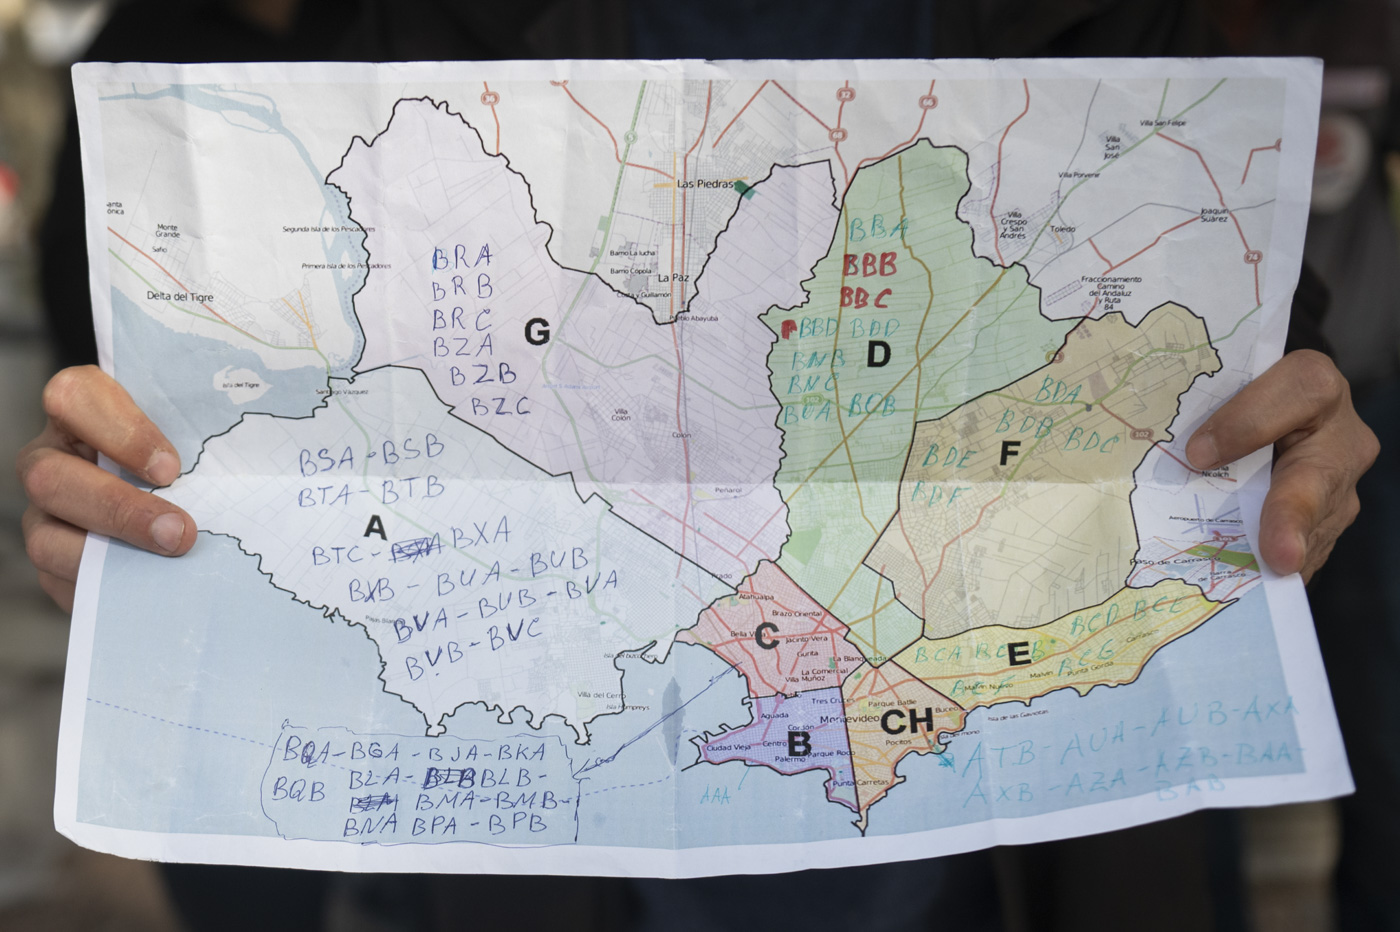 Las Piedras
Villa San Felipe
Villa
San
José
Villa Porvenir
Monte
Grande
Segunda Isla de los Pescadores
Villa
Crespo
y San
Andrés
Toledo
Joaquín
Suárez
74
BBA
BRA
BBB
Primera Isla de los Pescadores
Barrio La lucha
Barrio Cópola
La Paz
Fraccionamiento
Camino
del Andaluz
y Ruta
84
Delta del Tigre
BRB
BBC
BRC
G
Pueblo Abayubá
BBD BDD
D
BZA
BNB
BZB
BNC
Isla del Tigre
Santiago Vázquez
BZC
BUA BCB
BDA
Villa
Colón
Colón
102
BDB BDC
BSA-BSB
BDE
F
BTA-BTB
BDF
Peñarol
A
BTC- BXA
BXB - BUA - BUB
BVA-BUB-BVA
BVB-BVC
Prado
Atahualpa
Brazo Oriental
Bella Vista
C
Jacinto Vera
Goes
La Comercial
Villa Muñoz
La Blanqueada
BCD BCE
BCA
E
BCG
Malvín Nuevo
Malvín
Punta Gorda
Carrasco
Villa del Cerro
Tres Cruces
Parque Batlle
Buceo
Aguada
Cordón
Montevideo
CH
Isla de las Gaviotas
Ciudad Vieja
Centro
B
Parque Rodó
Pocitos
Palermo
Punta Carretas
AAA
ATB-AUA-AUB-AXA
AXB-AZA-AZB-BAA-
BAB
BQA-BGA-BJA-BKA
BQB
BLA- BLB-
BMA-BMB-
BNA BPA-BPB